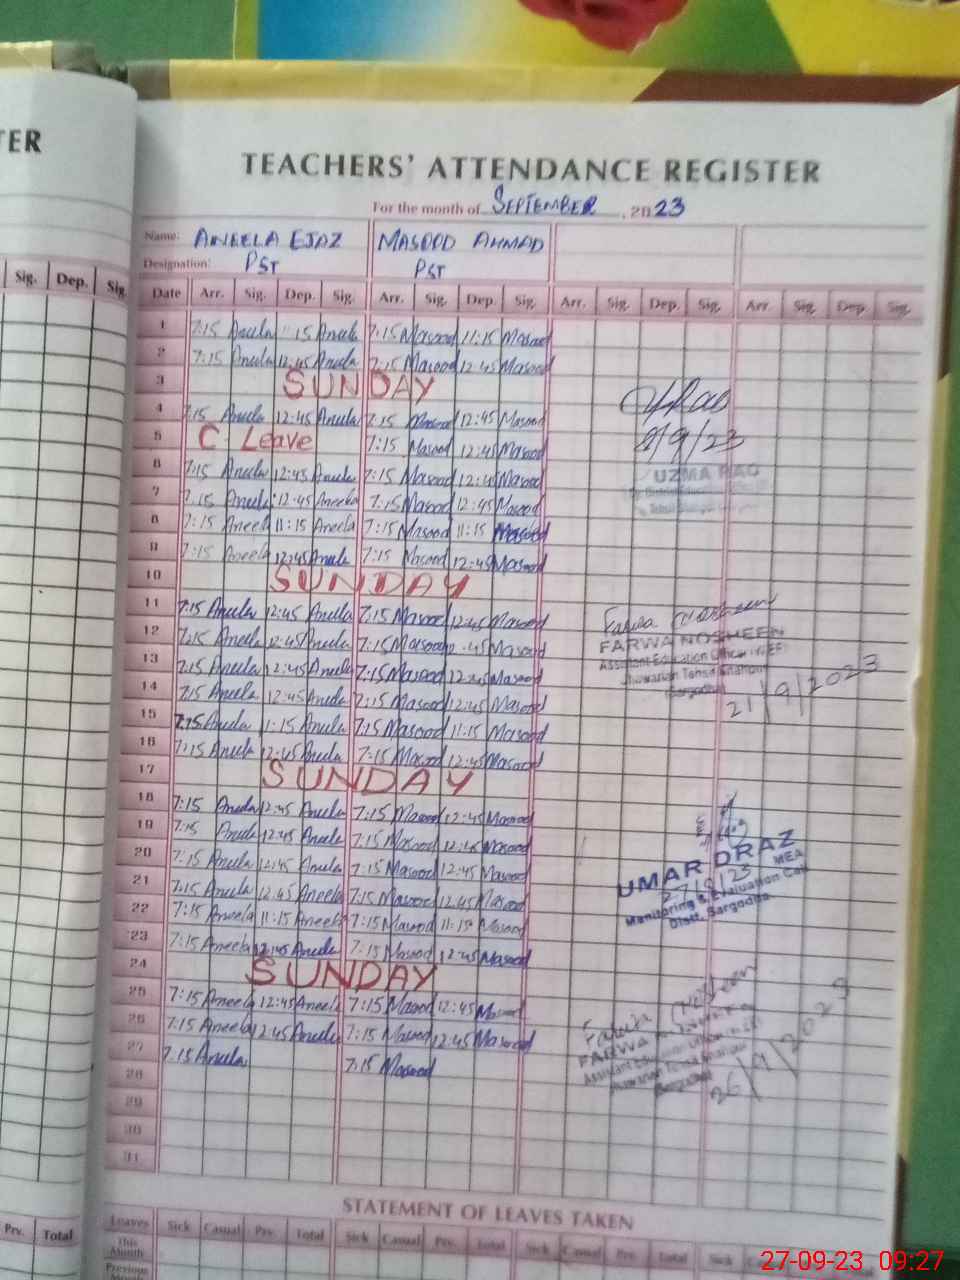 TER
TEACHERS' ATTENDANCE REGISTER
For the month of SEPTEMBER, 2023
Name: ANEELA EJAZ MASOOD AHMAD
Designation: PST PST
Sig. Dep. Sig.
Date Arr. Sig. Dep. Sig. Arr. Sig. Dep. Sig. Arr. Sig. Dep. Sig. Arr. Sig. Dep. Sig.
1 7:15 Aneela 11:15 Aneela 7:15 Masood 11:15 Masood
2 7:15 Aneela 12:45 Aneela 7:15 Masood 12:45 Masood
3 SUNDAY
4 7:15 Aneela 12:45 Aneela 7:15 Masood 12:45 Masood
5 C Leave 7:15 Masood 12:45 Masood
6 7:15 Aneela 12:45 Aneela 7:15 Masood 12:45 Masood
7 7:15 Aneela 12:45 Aneela 7:15 Masood 12:45 Masood
8 7:15 Aneela 11:15 Aneela 7:15 Masood 11:15 Masood
9 7:15 Aneela 12:45 Aneela 7:15 Masood 12:45 Masood
10 SUNDAY
11 7:15 Aneela 12:45 Aneela 7:15 Masood 12:45 Masood
12 7:15 Aneela 12:45 Aneela 7:15 Masood 12:45 Masood
13 7:15 Aneela 12:45 Aneela 7:15 Masood 12:45 Masood
14 7:15 Aneela 12:45 Aneela 7:15 Masood 12:45 Masood
15 7:15 Aneela 11:15 Aneela 7:15 Masood 11:15 Masood
16 7:15 Aneela 12:45 Aneela 7:15 Masood 12:45 Masood
17 SUNDAY
18 7:15 Aneela 12:45 Aneela 7:15 Masood 12:45 Masood
19 7:15 Aneela 12:45 Aneela 7:15 Masood 12:45 Masood
20 7:15 Aneela 12:45 Aneela 7:15 Masood 12:45 Masood
21 7:15 Aneela 12:45 Aneela 7:15 Masood 12:45 Masood
22 7:15 Aneela 11:15 Aneela 7:15 Masood 11:15 Masood
23 7:15 Aneela 12:45 Aneela 7:15 Masood 12:45 Masood
24 SUNDAY
25 7:15 Aneela 12:45 Aneela 7:15 Masood 12:45 Masood
26 7:15 Aneela 12:45 Aneela 7:15 Masood 12:45 Masood
27 7:15 Aneela 7:15 Masood
28
29
30
31
/9/23
UZMA RAO
Farwa Nosheen
FARWA NOSHEEN
Assistant Education Officer
Jhawarian Tehsil Shahpur
Sargodha
21/9/2023
UMAR DRAZ
27/9/23 MEA
Monitoring & Evaluation Cell
Distt. Sargodha
Farwa Nosheen
FARWA
Assistant Education Officer
Jhawarian Tehsil Shahpur
Sargodha
26/9/2023
STATEMENT OF LEAVES TAKEN
Prv. Total
Leaves Sick Casual Prv. Total Sick Casual Prv. Total Sick Casual Prv. Total Sick
This Month
Previous
27-09-23 09:27